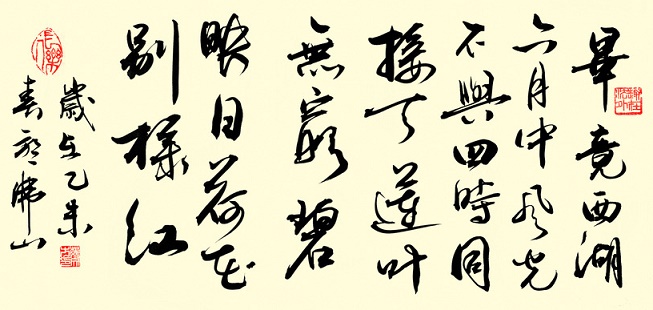 畢竟西湖
六月中风光
不與四時同
接天蓮叶
無窮碧
映日荷花
别樣红
歲在乙未
春山